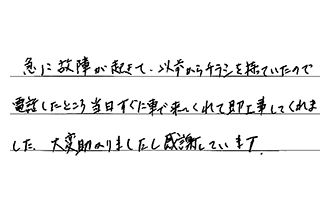 急に故障が起きて、以前からチラシを採っていたので
電話したところ当日すぐに車で来てくれて即工事してくれま
した。大変助かりましたし感謝しています。